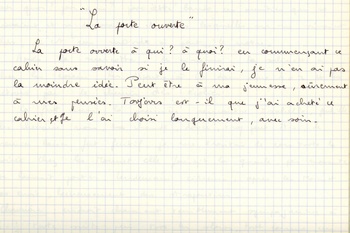 "La porte ouverte"
La porte ouverte à qui ? à quoi ? en commençant ce
cahier sans savoir si je le finirai, je n'en ai pas
la moindre idée. Peut être à ma jeunesse, sûrement
à mes pensées. Toujours est-il que j'ai acheté ce
cahier et je l'ai choisi longuement, avec soin.